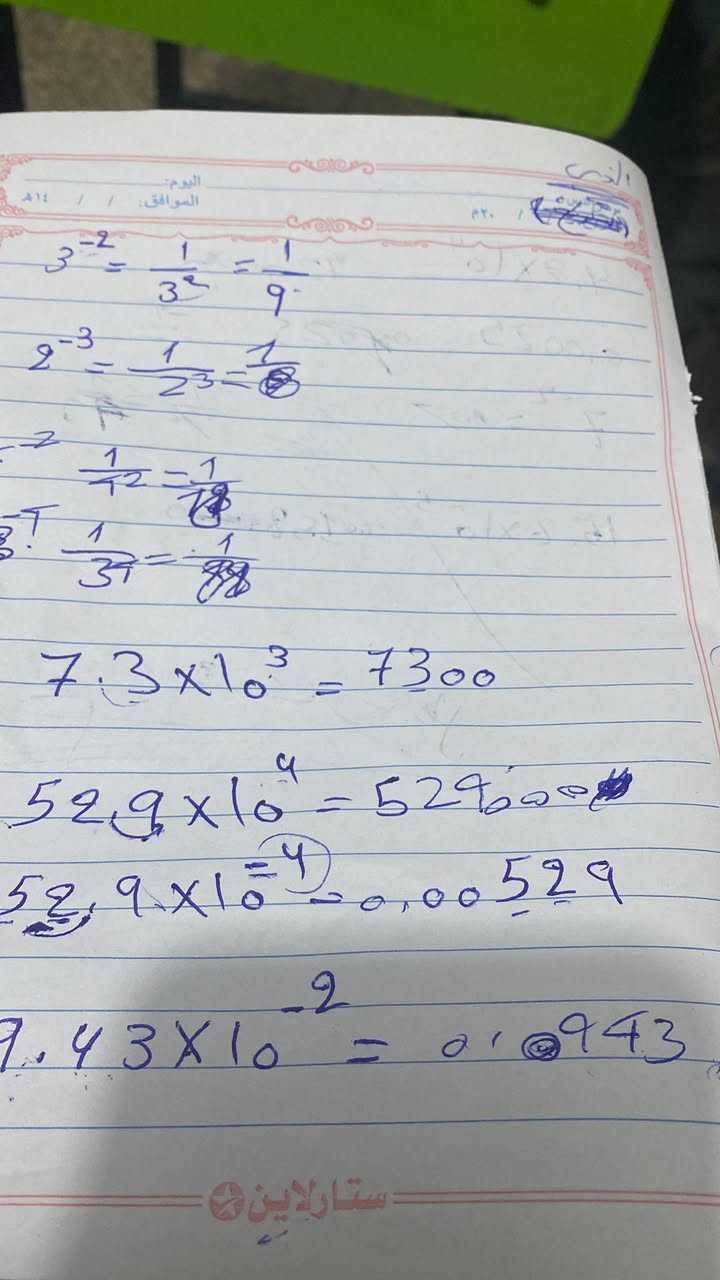 الخميس
اليوم:
الموافق: / / ١٤هـ / ٢٠م
3⁻² = 1/3² = 1/9
2⁻³ = 1/2³ = 1/8
⁻² 1/4² = 1/
1/3⁴ = 1/
7.3 × 10³ = 7300
52.9 × 10⁴ = 529000
52.9 × 10⁻⁴ = 0.00529
9.43 × 10⁻² = 0.0943
ستارلاين